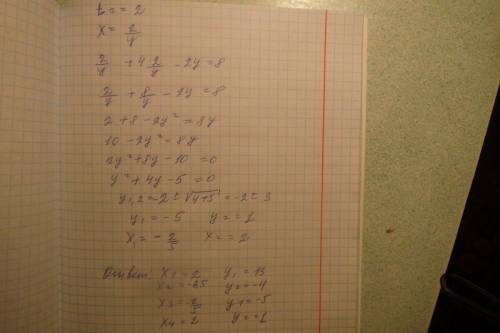 t = -2
x = 2/y
2/y + 4 2/y - 2y = 8
2/y + 8/y - 2y = 8
2 + 8 - 2y² = 8y
10 - 2y² = 8y
2y² + 8y - 10 = 0
y² + 4y - 5 = 0
y1,2 = -2 ± √4+5 = -2 ± 3
y1 = -5 y = 1
x1 = - 2/5 x = 2
Ответ x1 = 2 y1 = 15
x2 = -65 y = -4
x3 = - 2/5 y = -5
x4 = 2 y = 1